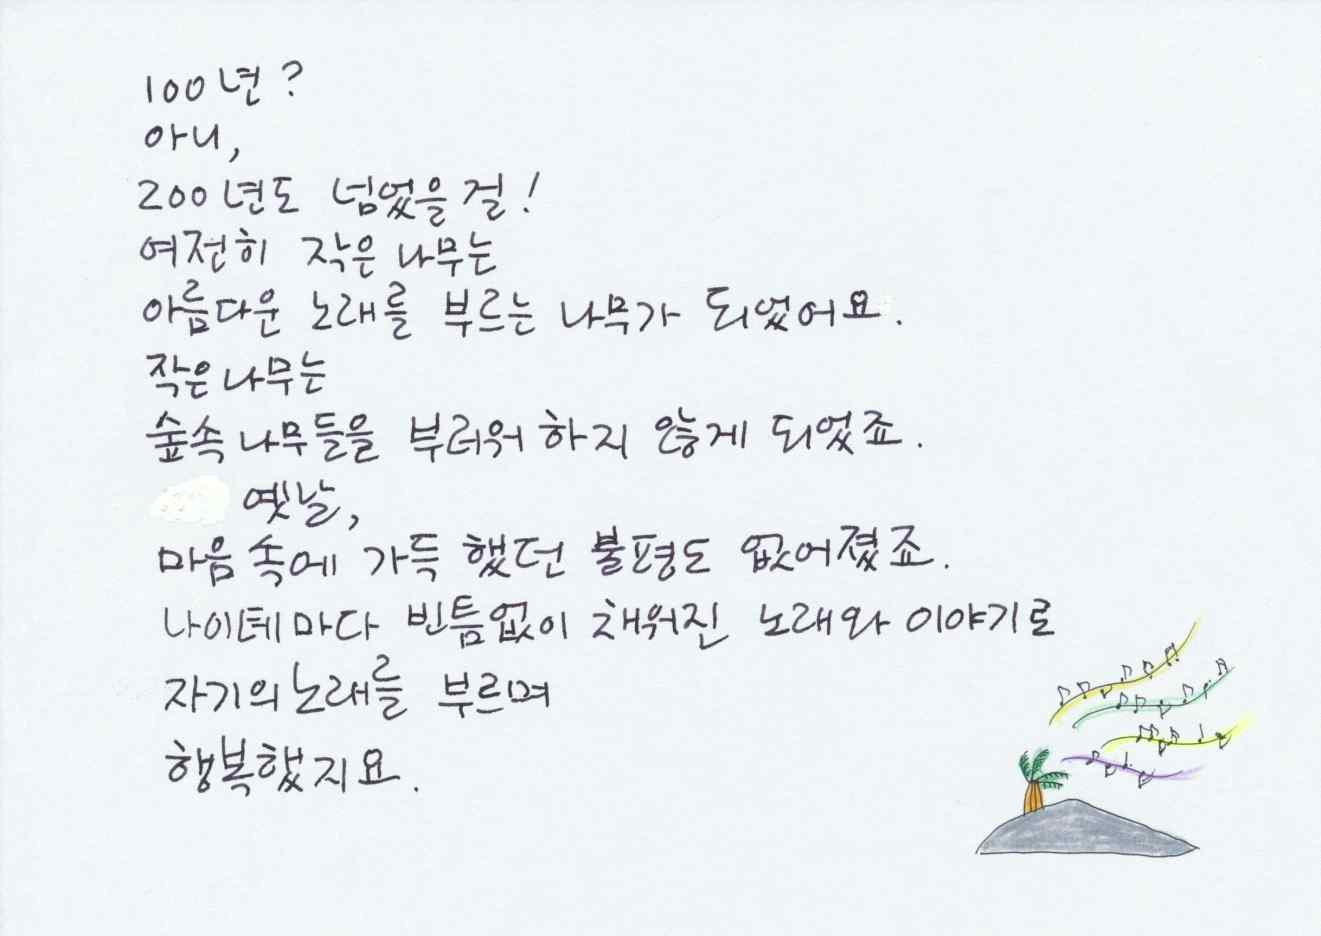 100년?
아니,
200년도 넘었을걸!
여전히 작은 나무는
아름다운 노래를 부르는 나무가 되었어요.
작은나무는
숲속 나무들을 부러워 하지 않게 되었죠.
옛날,
마음속에 가득 했던 불평도 없어졌죠.
나이테마다 빈틈없이 채워진 노래와 이야기로
자기의 노래를 부르며
행복했지요.